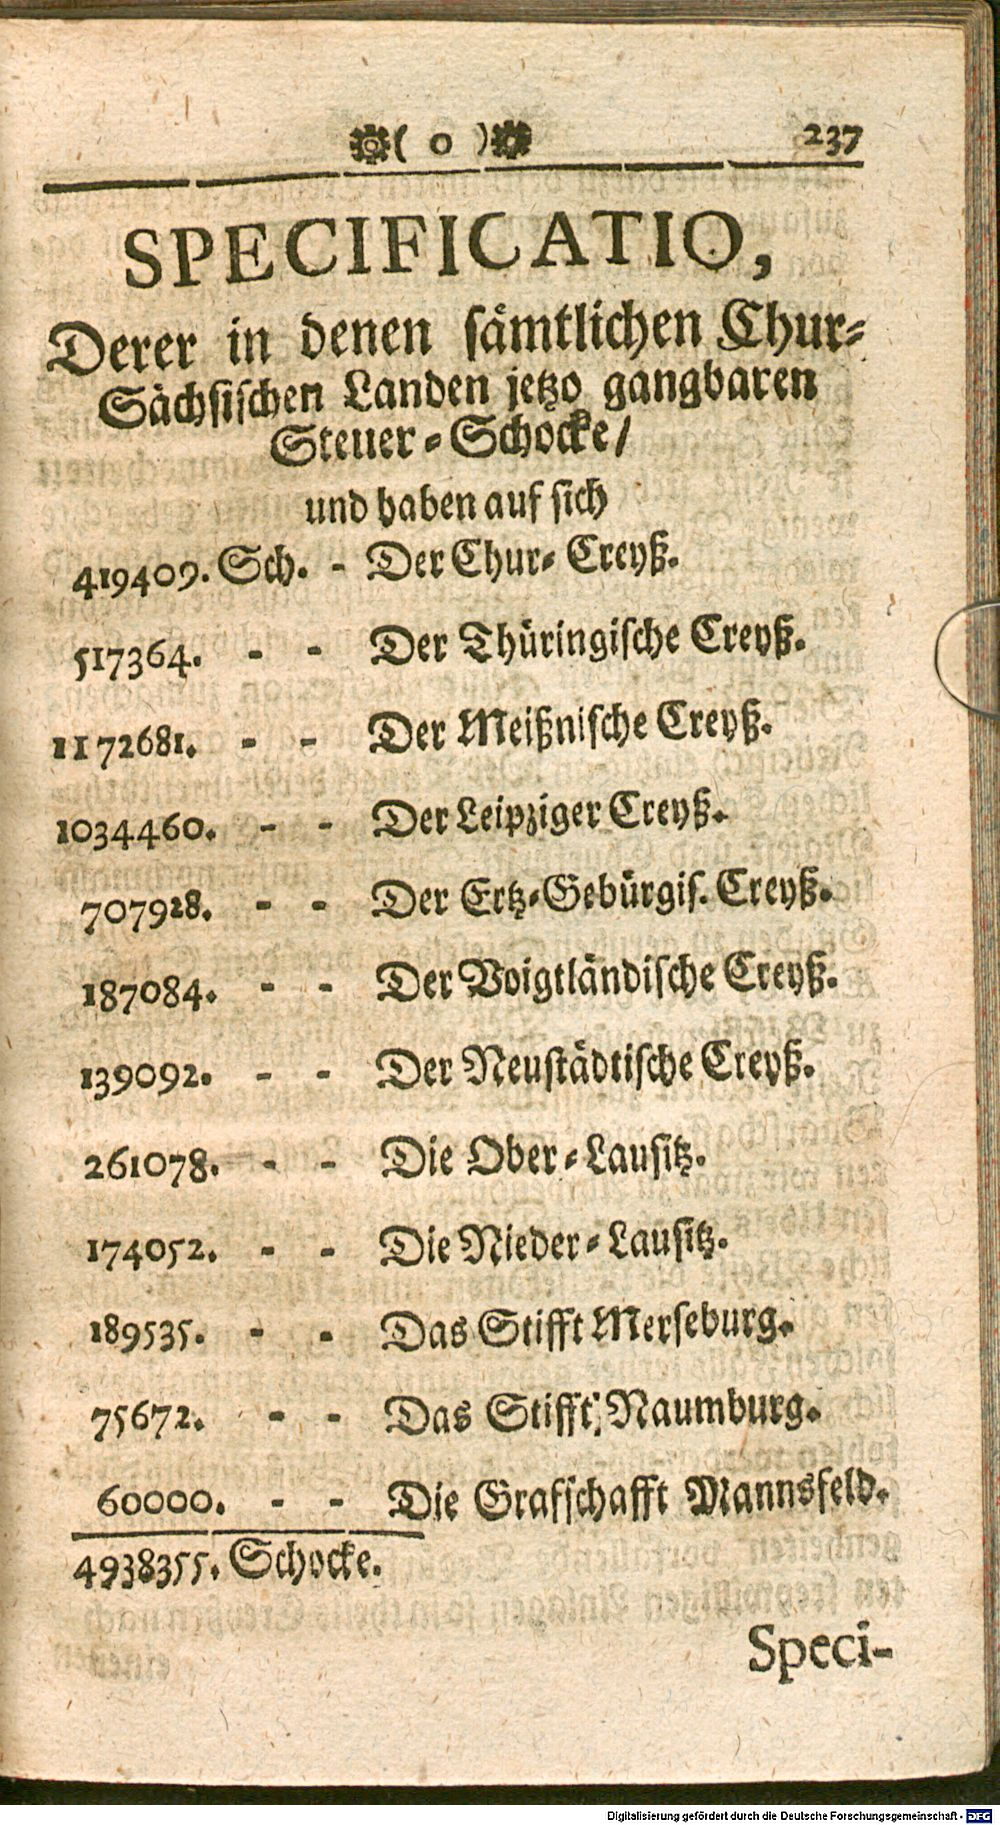 ( o ) 237
SPECIFICATIO,
Derer in denen sämtlichen Chur-
Sächsischen Landen jetzo gangbaren
Steuer-Schocke/
und haben auf sich
419409. Sch. - Der Chur-Creyß.
517364. - - Der Thüringische Creyß.
1172681. - - Der Meißnische Creyß.
1034460. - - Der Leipziger Creyß.
707928. - - Der Ertz-Gebürgis. Creyß.
187084. - - Der Voigtländische Creyß.
139092. - - Der Neustädtische Creyß.
261078. - - Die Ober-Lausitz.
174052. - - Die Nieder-Lausitz.
189535. - - Das Stifft Merseburg.
75672. - - Das Stifft Naumburg.
60000. - - Die Grafschafft Mannsfeld.
4938355. Schocke.
Speci-
Digitalisierung gefördert durch die Deutsche Forschungsgemeinschaft - DFG